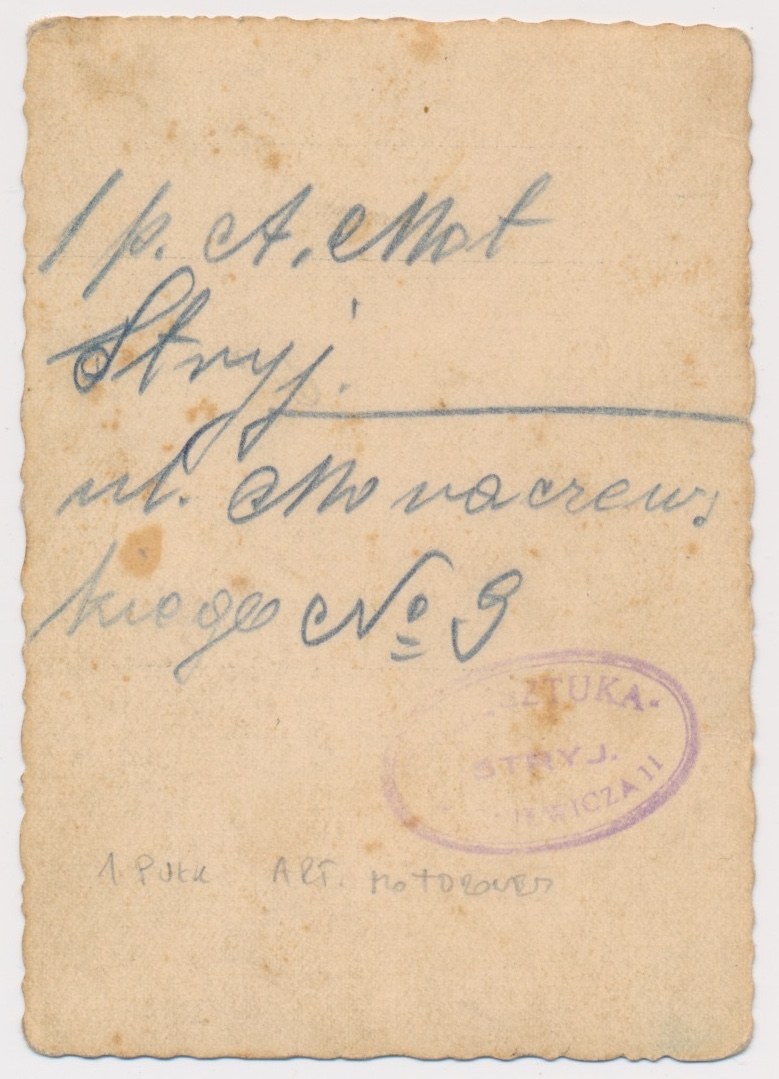 1 p. A. Mot
Stryj.
ul. Monaczews
kiego No 9
SZTUKA
STRYJ.
WICZA 11
1 PUŁK ART. MOTOROWEJ